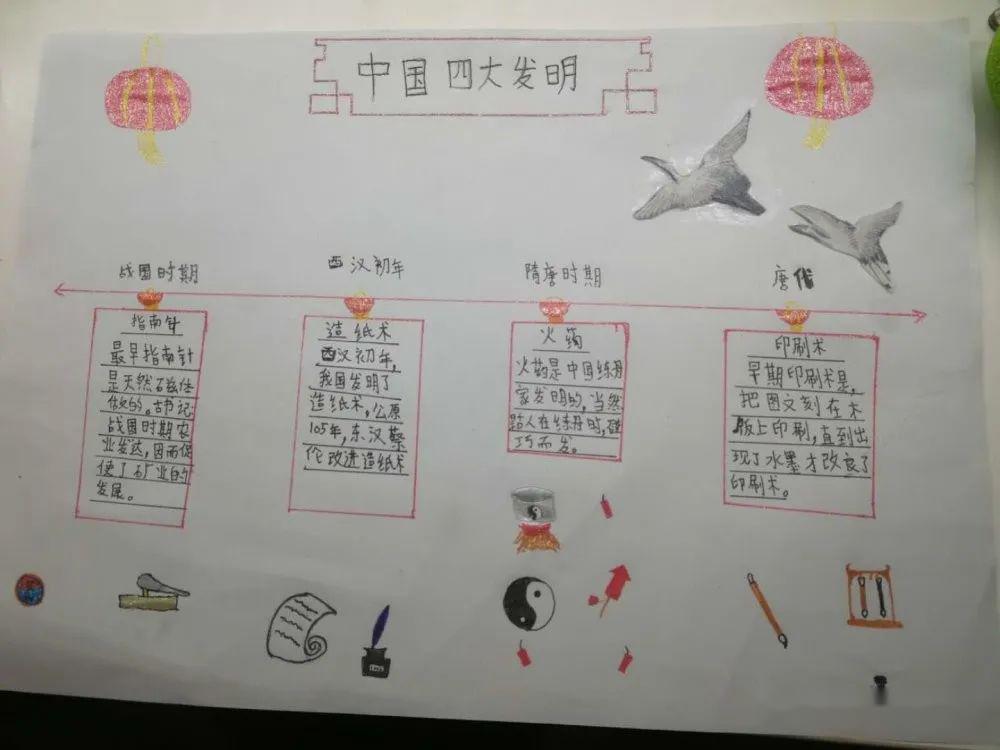 中国四大发明
战国时期
西汉初年
隋唐时期
唐代
指南针
最早指南针
是天然石磁体
做的。古书记
战国时期农
业发达,因而促
使了矿业的
发展。
造纸术
西汉初年,
我国发明了
造纸术,公原
105年,东汉蔡
伦改进造纸术
火药
火药是中国练丹
家发明的,当然
路人在练丹时,碰
巧而发。
印刷术
早期印刷术是,
把图文刻在木
版上印刷,直到出
现了水墨才改良了
印刷术。
INK